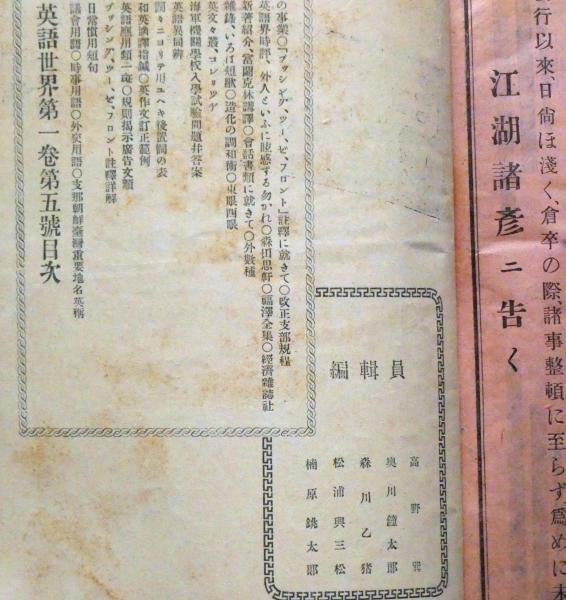 行以來、日尙ほ淺く、倉卒の際、諸事整頓に至らず、爲めに未
江湖諸彥ニ告ぐ
編輯員
高野巽
奥川鐘太郞
森川乙猪
松浦與三松
楠原銚太郞
の事業〇「プッシング、ツー、ゼ、フロント」註釋に就きて〇改正支部規程
英語界時評、外人といふに眩惑する勿かれ〇森田思軒〇福澤全集〇經濟雜誌社
新著紹介、當蘭克林講譯〇會話書類に就きて〇外數種
雜錄、いろは短歌〇造化の調和術〇東眼西眼
英文々叢、コレリツヂ
海軍機關學校入學試驗問題幷答案
英語異同辨
詞々ニヨリテ用ユヘキ後置詞の表
和英飜譯指鍼〇英作文訂正範例
英語應用類一斑〇規則揭示廣告文類
プッシング、ツー、ゼ、フロント註釋詳解
日常慣用短句
議會用語〇時事用語〇外交用語〇支那朝鮮臺灣重要地名英稱
英語世界第一卷第五號目次